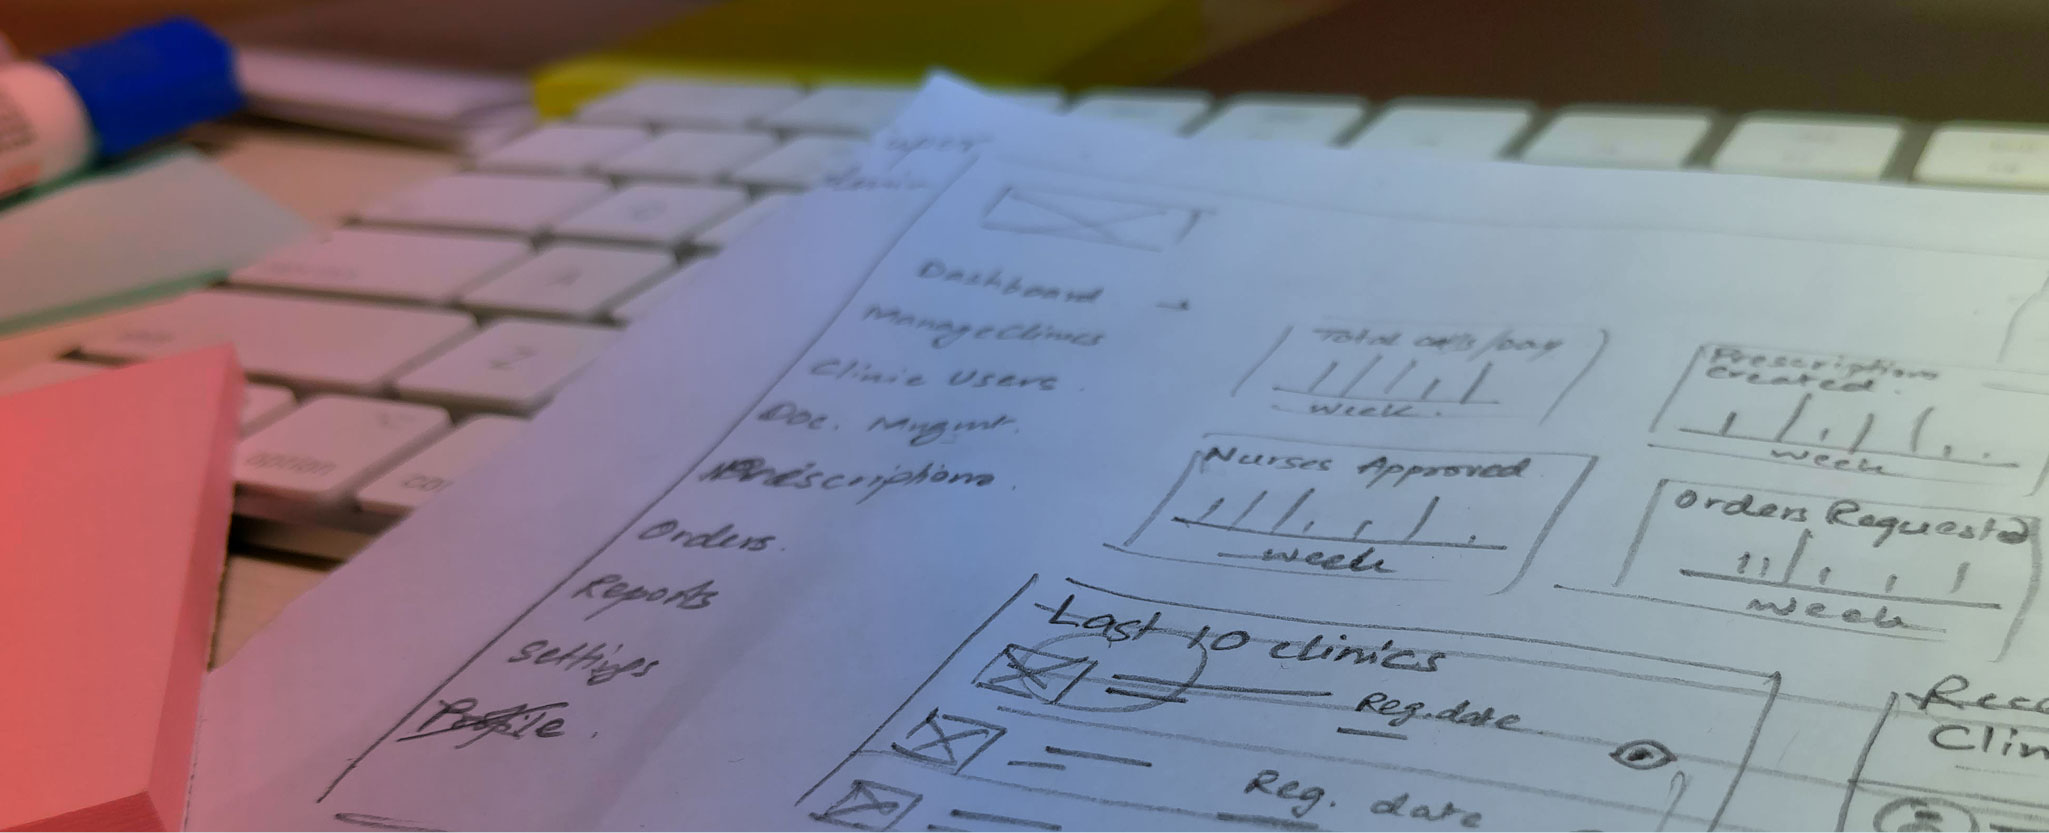 super
Admin
Dashboard →
Manage Clinics
Clinic Users.
Doc. Mngmt.
Prescriptions.
Orders.
Reports
Settings
Profile.
Total calls/day
Week.
Prescriptions
Created.
Week
Nurses Approved
Week
Orders Requested
Week
Last 10 clinics
Reg. date
Reg. date
Rece
Clin
option
Z
A